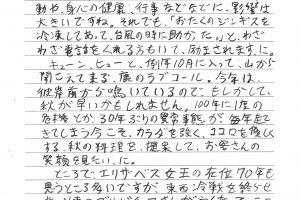 動や身心の健康、行事などなどに、影響は
大きいですね。それでも、「おたくのジンギスを
冷凍してあって、台風の時に助かった」と、わざ
わざ電話をくれる方もいて、励まされます。に。
キューン、ピューと、例年10月に入って、山から
聞こえて来る、鹿のラブコール。今年は、
彼岸前から鳴いているので、もしかして、
秋が早いかもしれません。100年に1度の
危機とか、30年ぶりの異常事態が毎年起
きてしまう今こそ、カラダを強く、ココロを優しく
する、秋の料理を提案して、お客さんの
笑顔を見たい、に。
ところで、エリザベス女王の在位70年も
思うところ多いですが、東西冷戦を終らせ